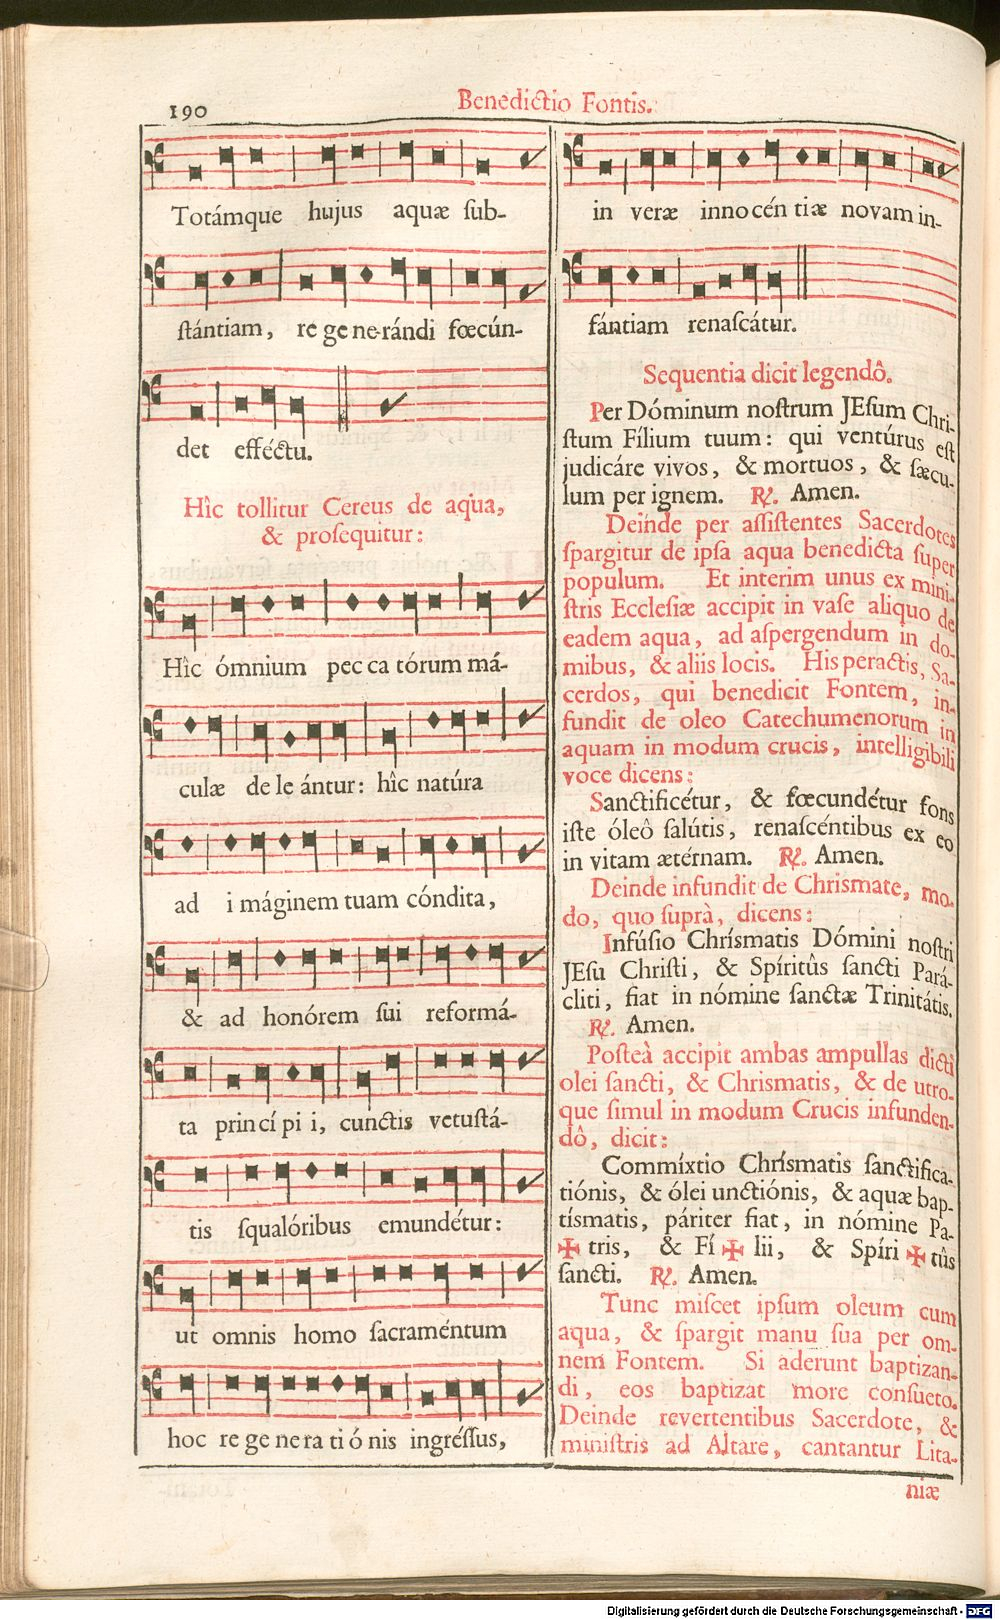 190
Benedictio Fontis.
Totámque hujus aquæ ſub-
ſtántiam, re ge ne-rándi fœcún-
det efféctu.
Hîc tollitur Cereus de aqua,
& proſequitur:
Hîc ómnium pec ca tórum má-
culæ de le ántur: hîc natúra
ad i máginem tuam cóndita,
& ad honórem ſui reformá-
ta princí pi i, cunctis vetuſtá-
tis ſqualóribus emundétur:
ut omnis homo ſacraméntum
hoc re ge ne ra ti ó nis ingréſſus,
in veræ inno cén tiæ novam in-
fántiam renaſcátur.
Sequentia dicit legendô.
Per Dóminum noſtrum JEſum Chri-
ſtum Fílium tuum: qui ventúrus eſt
judicáre vivos, & mortuos, & ſæcu-
lum per ignem. ℟. Amen.
Deinde per aſſiſtentes Sacerdotes
ſpargitur de ipſa aqua benedicta ſuper
populum. Et interim unus ex mini-
ſtris Eccleſiæ accipit in vaſe aliquo de
eadem aqua, ad aſpergendum in do-
mibus, & aliis locis. His peractis, Sa-
cerdos, qui benedicit Fontem, in-
fundit de oleo Catechumenorum in
aquam in modum crucis, intelligibili
voce dicens:
Sanctificétur, & fœcundétur fons
iſte óleô ſalútis, renaſcéntibus ex eo
in vitam ætérnam. ℟. Amen.
Deinde infundit de Chrismate, mo-
do, quo ſuprà, dicens:
Infúſio Chríſmatis Dómini noſtri
JEſu Chriſti, & Spíritûs ſancti Pará-
cliti, fiat in nómine ſanctæ Trinitátis.
℟. Amen.
Poſteà accipit ambas ampullas dicti
olei ſancti, & Chrismatis, & de utro-
que ſimul in modum Crucis infunden-
dô, dicit:
Commíxtio Chríſmatis ſanctifica-
tiónis, & ólei unctiónis, & aquæ bap-
tísmatis, páriter fiat, in nómine Pa-
✠ tris, & Fí ✠ lii, & Spíri ✠ tûs
ſancti. ℟. Amen.
Tunc miſcet ipſum oleum cum
aqua, & ſpargit manu ſua per om-
nem Fontem. Si aderunt baptizan-
di, eos baptizat more conſueto.
Deinde revertentibus Sacerdote, &
miniſtris ad Altare, cantantur Lita-
niæ
Digitalisierung gefördert durch die Deutsche Forschungsgemeinschaft - DFG